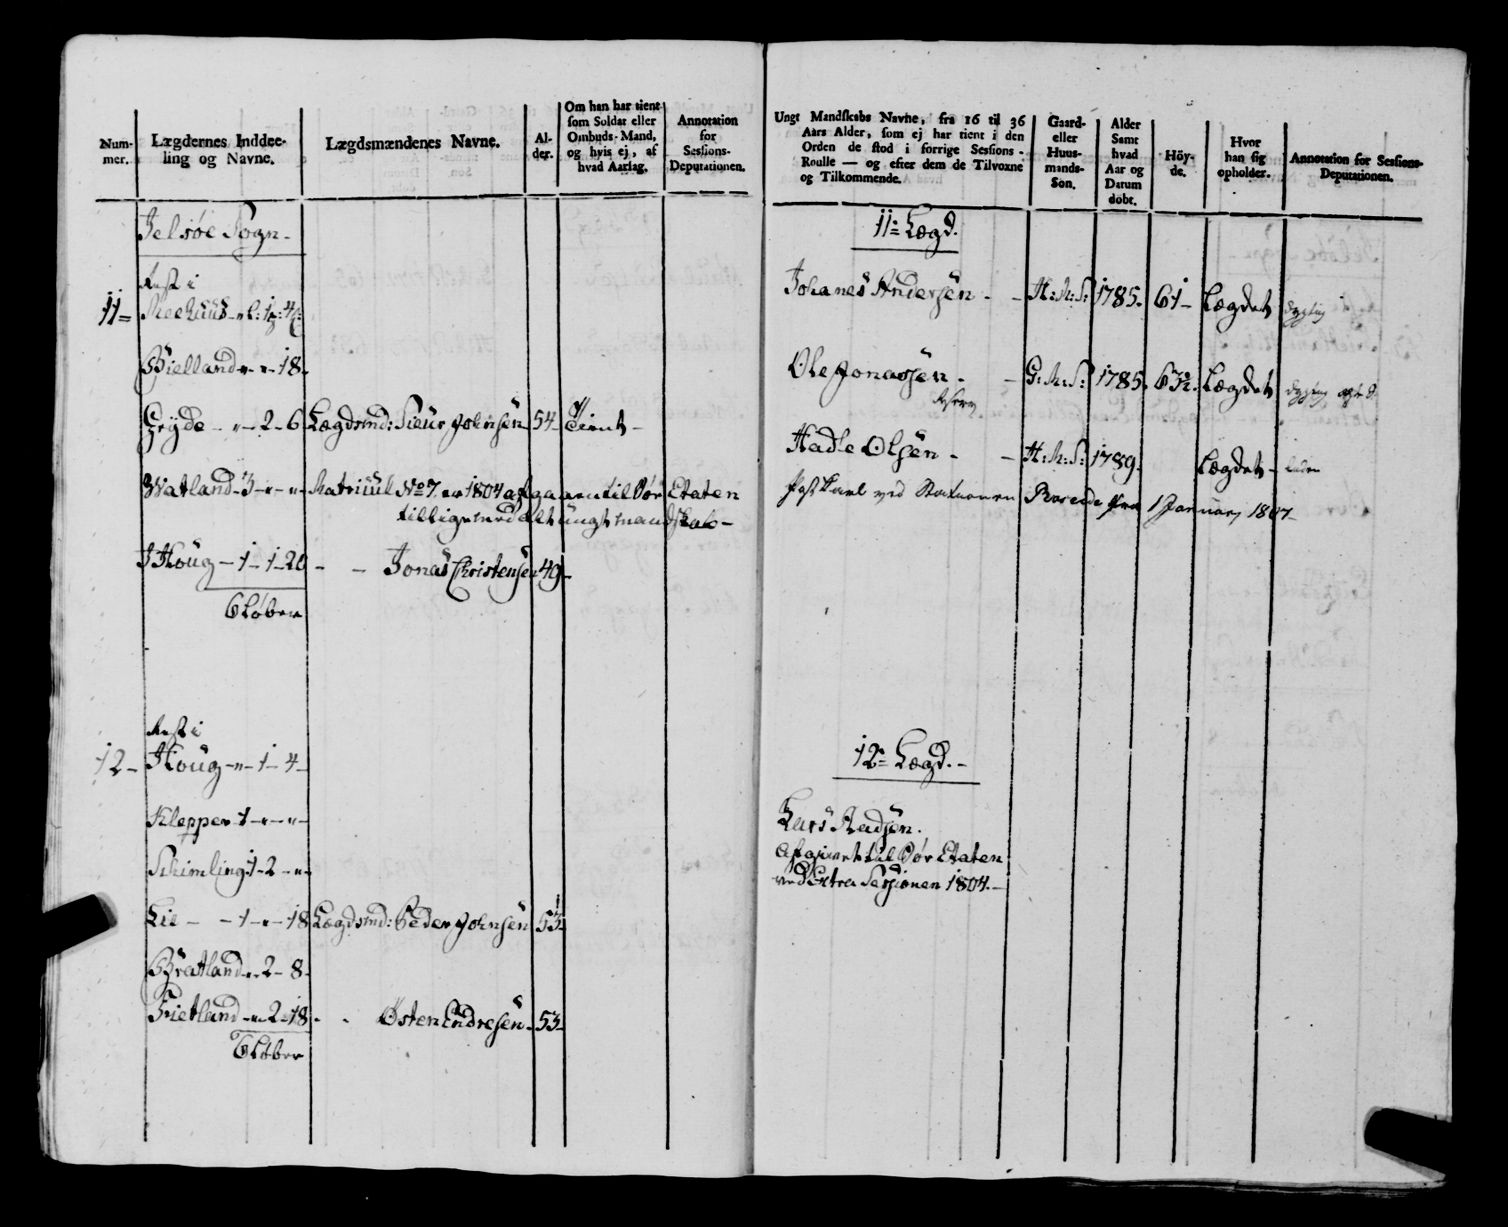 Num-
mer.
Lægdernes Inddee-
ling og Navne.
Lægdsmændenes Navne.
Al-
der.
Om han har tient
som Soldat eller
Ombuds-Mand,
og hvis ej, af
hvad Aarsag.
Annotation
for
Sessions-
Deputationen.
Jelsöe Sogn
Rest i
11 Meehuus
Bielland 18
Gryde 2 6 Lægdsmd: Sieur Johnsen 54 Tient
Watland 3 Matricul No 7. 1804 afgaaen til Søe Etaten
tilligemed alt ungt mandskab
Houg 1 1 20 Jonas Christensen 49
6 Løber
Rest i
12 Houg 1 4
Kleppen 1
Skimling 1 2
Lie 1 18 Lægdsmd: Peder Johnsen 53
Bratland 2 8
Frietland 2 18 Østen Endresen 53
6 Løber
Ungt Mandskabs Navne, fra 16 til 36
Aars Alder, som ej har tient i den
Orden de stod i forrige Sessions-
Roulle — og efter dem de Tilvoxne
og Tilkommende.
Gaard-
eller
Huus-
mands-
Søn.
Alder
Samt
hvad
Aar og
Datum
döbt.
Höy-
de.
Hvor
han sig
opholder.
Annotation for Sessions-
Deputationen.
11te Lægd.
Johanes Andersen H: M: S: 1785. 61 Lægdet dygtig
Ole Jonassen G: M: S: 1785. 63½ Lægdet dygtig
Hadle Olsen H: M: S: 1789. Lægdet liden
Postkarl ved Stationen fra 1 January 1807
12te Lægd.
Lars Madsen.
Afgivet til Søe Etaten
ved Extra Sessionen 1804.